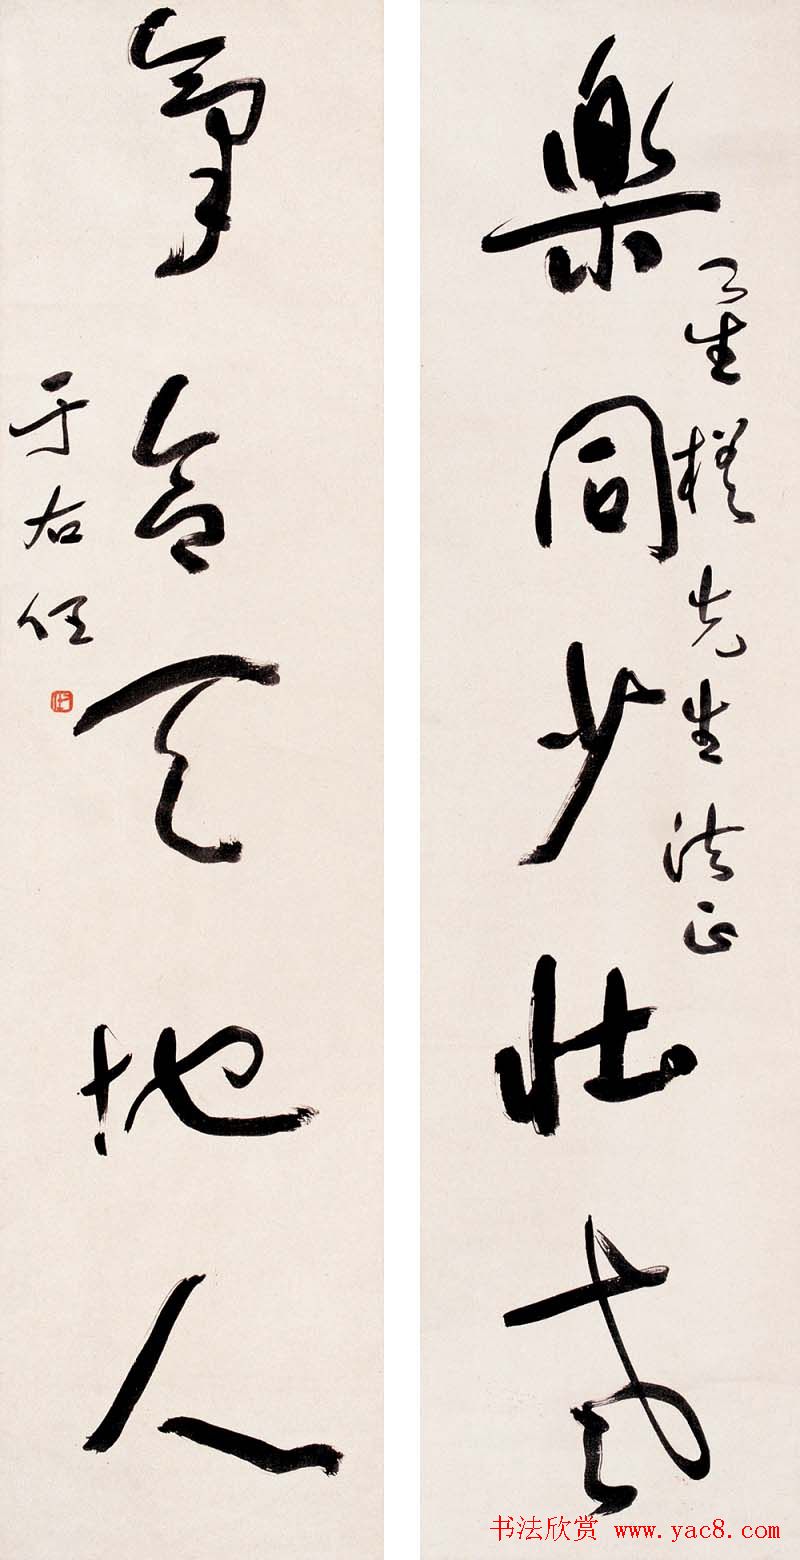 樂同少壮老
先生法正
合天地人
于右任
书法欣赏 www.yac8.com